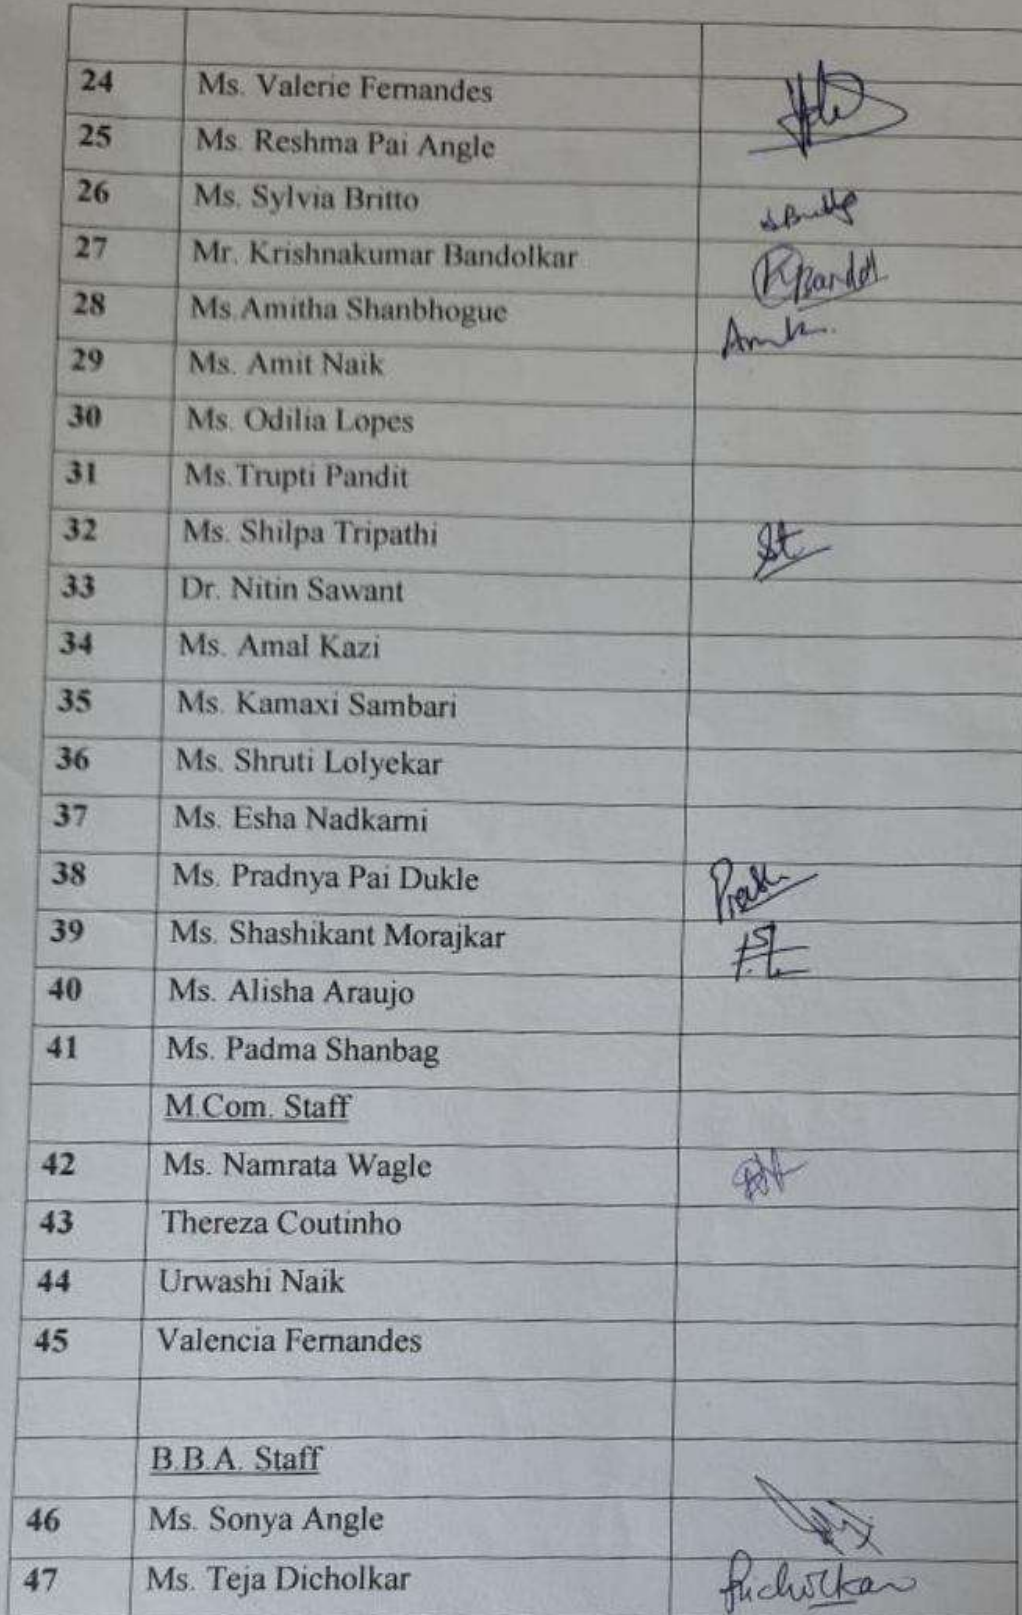 24 Ms. Valerie Fernandes
25 Ms. Reshma Pai Angle
26 Ms. Sylvia Britto
27 Mr. Krishnakumar Bandolkar
28 Ms.Amitha Shanbhogue
29 Ms. Amit Naik
30 Ms. Odilia Lopes
31 Ms.Trupti Pandit
32 Ms. Shilpa Tripathi
33 Dr. Nitin Sawant
34 Ms. Amal Kazi
35 Ms. Kamaxi Sambari
36 Ms. Shruti Lolyekar
37 Ms. Esha Nadkarni
38 Ms. Pradnya Pai Dukle
39 Ms. Shashikant Morajkar
40 Ms. Alisha Araujo
41 Ms. Padma Shanbag
M.Com. Staff
42 Ms. Namrata Wagle
43 Thereza Coutinho
44 Urwashi Naik
45 Valencia Fernandes
B.B.A. Staff
46 Ms. Sonya Angle
47 Ms. Teja Dicholkar